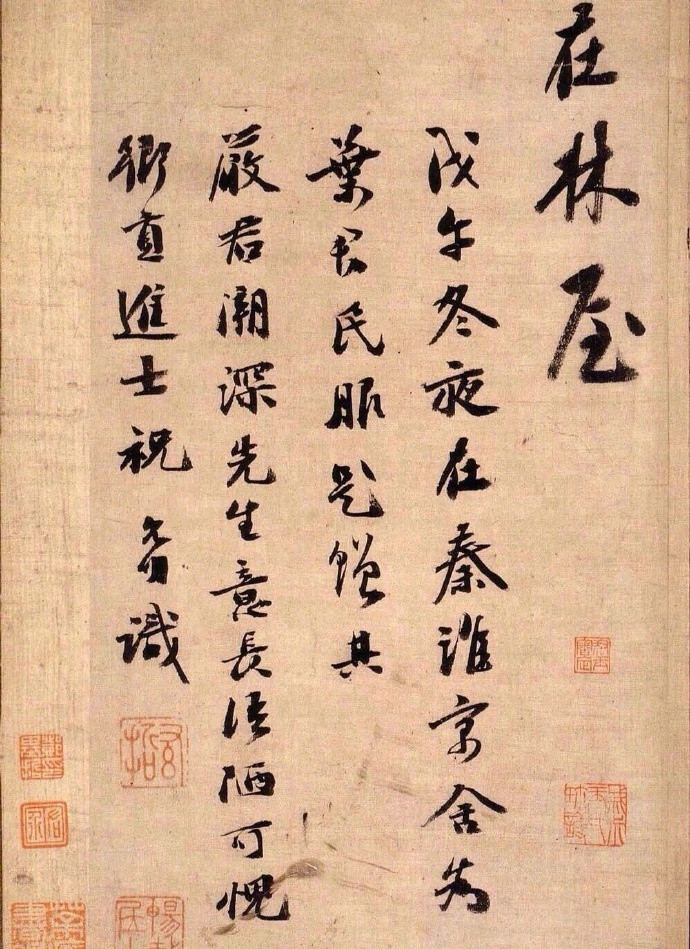 在林屋
戊午冬夜在秦淮寓舍為
葉君民服題贈其
嚴君潮深先生意長語陋可愧
鄉貢進士祝 識